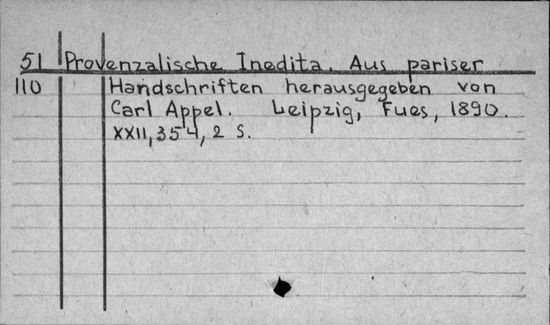 51 Provenzalische Inedita. Aus pariser
110 Handschriften herausgegeben von
Carl Appel. Leipzig, Fues, 1890.
XXII, 354, 2 S.